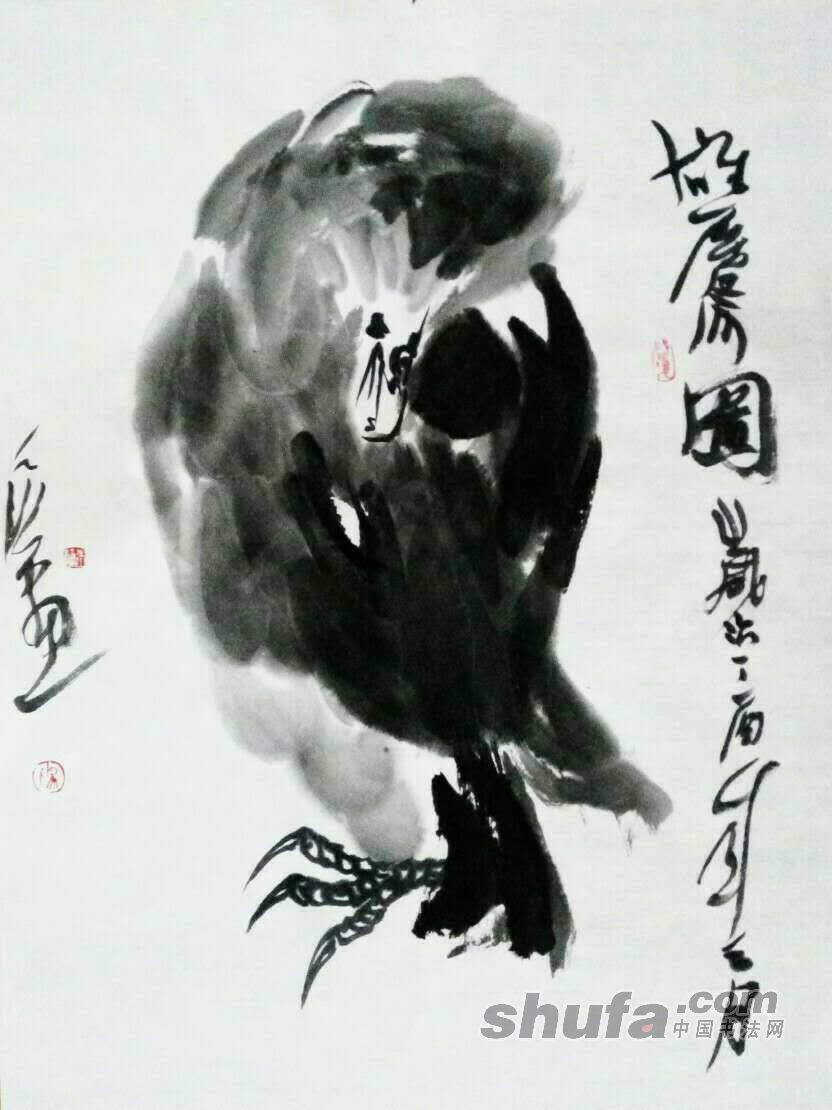 雄鹰图
岁次丁酉年三月
画
shufa.com
中国书法网